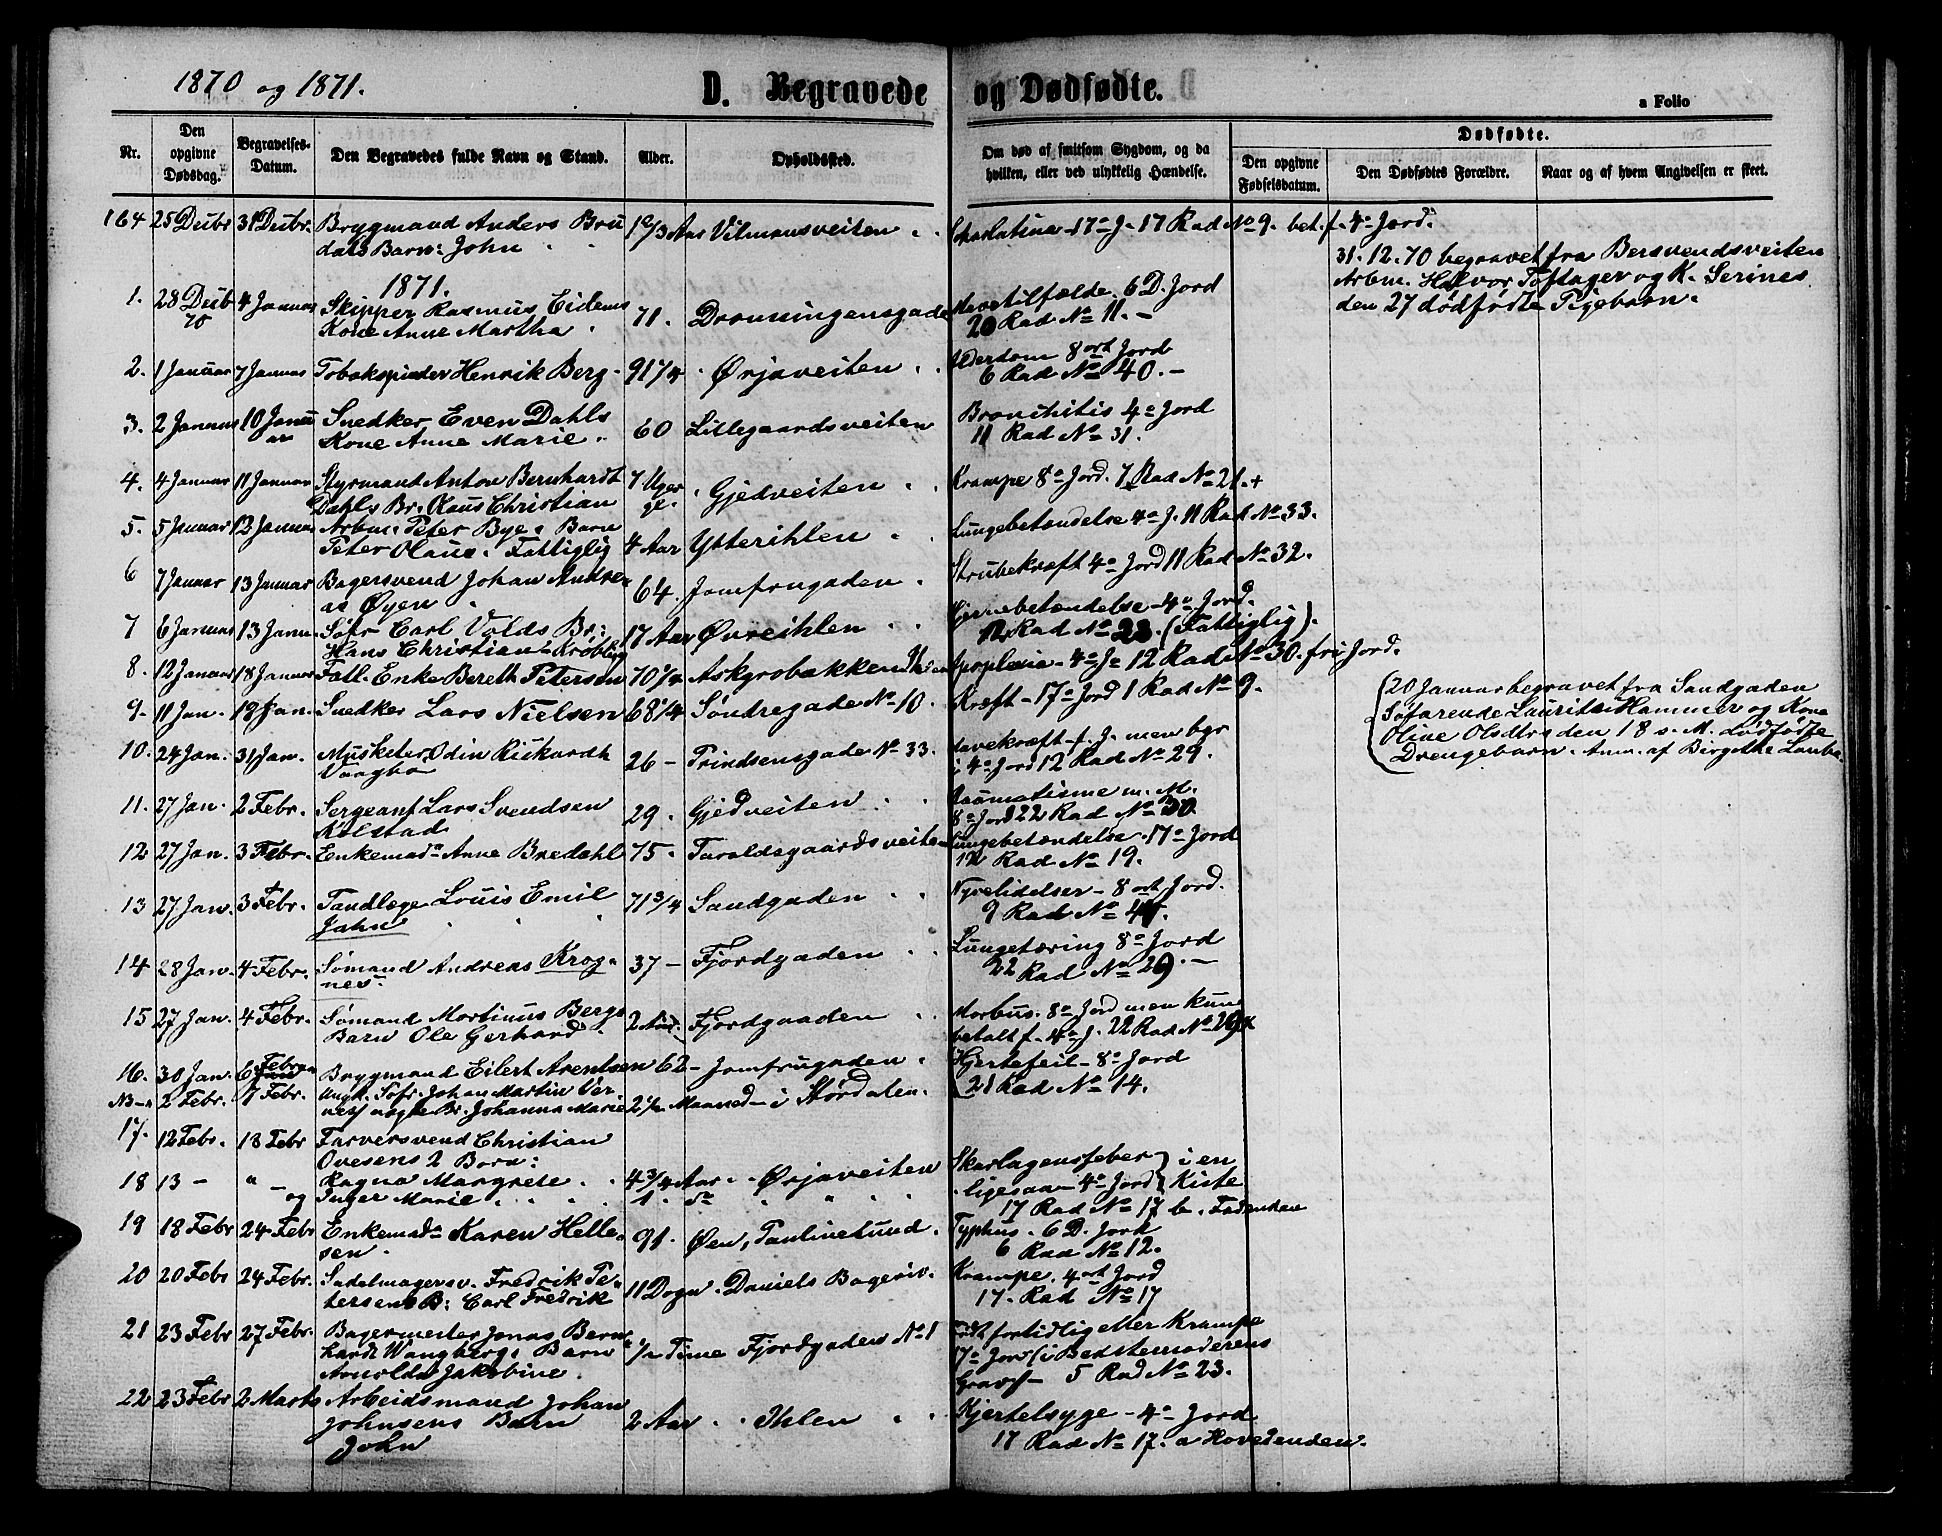 1870 og 1871.
D. Begravede og Dødfødte.
a Folio
Nr. Den opgivne Dødsdag. Begravelses-Datum. Den Begravedes fulde Navn og Stand. Alder. Opholdssted. Om død af smitsom Sygdom, og da hvilken, eller ved ulykkelig Hændelse. Dødfødte. Den opgivne Fødselsdatum. Den Dødfødtes Forældre. Naar og af hvem Angivelsen er skeet.
164 25 Debr 31 Debr. Brygmand Anders Bru 1 2/3 Aar Vilmansveiten Skarlatina - 17de J. 17 Rad No 9. bet. f. 4de Jord.
dals Barn: John
31.12.70 begravet fra Bersvendsveiten
Arbm. Halvor Toftager og K. Serines
den 27 dødfødte Pigebarn.
1871.
1. 28 Debr 70 4 Januar Skipper Rasmus Eidems 71. Dronningensgade Mavetilfælde. 6 D. Jord
Kone Anne Martha 20 Rad No 11.
2. 1 Januar 7 Januar Tobakspinder Henrik Berg 91 1/4 Ørjaveiten Alderdom 8ort Jord
6 Rad No 40.
3. 2 Januar 10 Januar Snedker Even Dahls 60 Lillegaardsveiten Bronchitis 4de Jord
Kone Anne Marie 11 Rad No 31.
4. 4 Januar 11 Januar Styrmand Anton Bernhardt 7 Uger Gjedveiten Krampe 8de Jord. 7 Rad No 21.+
Dahls Br. Olaus Christian
5. 5 Januar 12 Januar Arbm. Peter Byes Barn 4 Aar Ytterihlen Lungebetændelse 4de J. 11 Rad No 33.
Peter Olaus. Fattiglig
6 7 Januar 13 Januar Bagersvend Johan Andre- 64. Jomfrugaden Strubekræft 4de Jord 11 Rad No 32.
as Øyen
7 6 Januar 13 Janu. Søfr Carl Volds Br: 17 Aar Øvreihlen Hjernebetændelse 4de Jord.
Hans Christian Krøbling 12 Rad No 28. (Fattiglig).
8. 12 Januar 18 Januar Fatl. Enke Bereth Petersen 70 1/4 Askgrobakken Ihlen Apoplexia - 4de J. 12 Rad No 30. fri Jord.
9. 11 Jan. 18 Jan. Snedker Lars Nielsen 68 1/4 Søndregade No 10. Kræft - 17de Jord 1 Rad No 9.
(20 Januar begravet fra Sandgaden
Søfarende Laurits Hammer og Kone
Oline Olsdtrs den 18 s. M. dødfødte
Drengebarn. Anm. af Birgithe
10. 24 Jan. 31 Jan. Musketer Odin Rickardt 26 Prindsensgade No 33. Mavekræft f. J. men bgr
Vaagbø i 4de Jord 12 Rad No 29.
11. 27 Jan. 2 Febr. Sergeant Lars Svendsen 29. Gjedveiten Raumatisme m. M.
Kolstad 8de Jord 22 Rad No 30
12 27 Jan. 3 Febr. Enkemade Anne Bredahl 75. Taraldsgaardsveiten Lungebetændelse 17de Jord
12 Rad No 19.
13 27 Jan. 3 Febr. Tandlæge Louis Emil 71 3/4 Sandgaden Nyrelidelser - 8ort Jord.
Jahn 9 Rad No 45.
14 28 Jan. 4 Febr. Sømand Andreas Krog- 37 Fjordgaden Lungetæring 8de Jord
nes 22 Rad No 29.
15 27 Jan. 4 Febr. Sømand Mortinus Bergs 2 Aar. Fjordgaaden Morbus. 8de Jord men kun
Barn Ole Gerhard betalt f. 4de J. 22 Rad No 29
16. 30 Jan. 6 Febr. Brygmand Eilert Arentsen 62 Jomfrugaden Hjertefeil - 8de Jord
21 Rad No 14.
NB 2 Febr. 7 Febr. Ungk. Søfr. Johan Martin
Br. Johanna Marie 2 1/2 Maaned i Stördalen.
17. 12 Febr. 18 Febr Farversvend Christian
Ovesens 2 Børn:
18 13 - " - Ragna Margrete 4 3/4 Aar Ørjaveiten Skarlagensfeber } i en
og Inger Marie 1. do ligesaa 4de Jord } Kiste
17 Rad No 17 b. Fodenden
19 18 Febr 24 Febr Enkemade Karen Helle- 91. Øen, Paulinelund. Typhus. 6 D. Jord
sen. 6 Rad No 12.
20 20 Febr 24 Febr. Sadelmagersv. Fredrik Pe- 11 Dogn Daniels Bageriv. Krampe. 4ort Jord
tersens B: Carl Fredrik 17. Rad No 17
21 23 Febr 27 Febr. Bagermester Jonas Bern- 1/2 Time Fjordgaden No 1 Født fortidlig eller Krampe
hardt Wangbergs Barn 17de Jord (i Bedstemoderens
Arnolda Jakobine. Grav) - 5 Rad No 23.
22 23 Febr 2 Marts Arbeidsmand Johan 2 Aar Ihlen Kjertelsyge - 4de Jord
Johnsens Barn 17 Rad No 17. a Hovedenden.
John